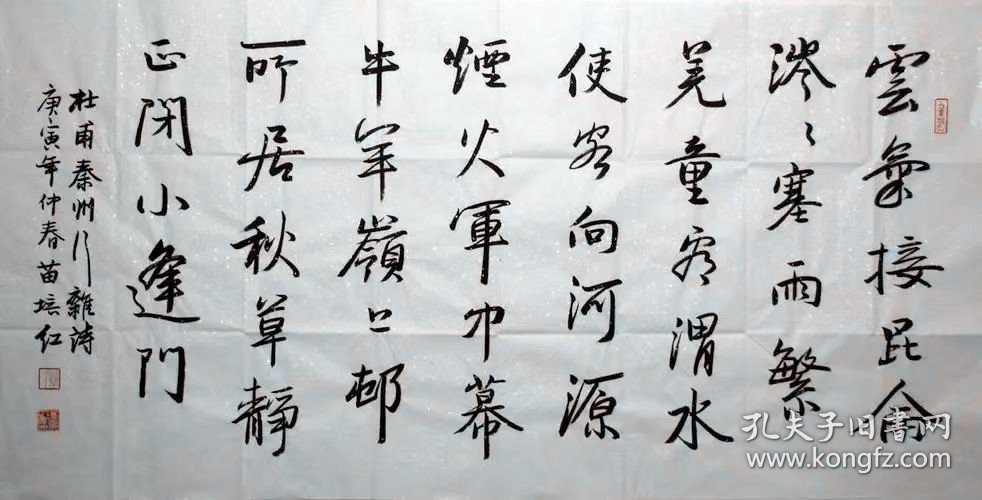 雲氣接昆侖
涔〻塞雨繁
羌童看渭水
使客向河源
煙火軍中幕
牛羊嶺上邨
所居秋草靜
正閉小逢門
杜甫秦州行雜詩
庚寅年仲春苗培红
孔夫子旧书网
www.kongfz.com